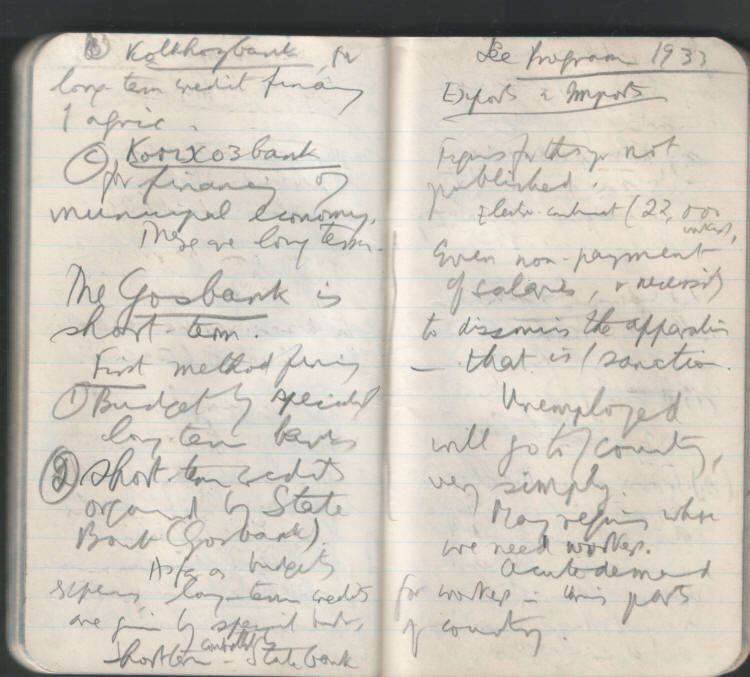 (B) Kolkhozbank, for
long-term credit financing
of agric.
(C) Komxo3bank
for financing of
municipal economy.
These are long term.
The Gosbank is
short-term.
First method
(1) Budget by special
long term banks
(2) Short-term credits
organised by State
Bank (Gosbank).
As far as budgets
long-term credits
are given by special banks,
controlled by
Short term - State bank
See Program 1933
Exports & Imports
Figures for this yr not
published.
(22,000
workers,
Even non-payment
of salaries, & necessity
to dismiss the apparatus
— that is / sanction.
Unemployed
will go to / country,
very simply.
Many regions where
we need workers.
Acute demand
for workers in various parts
of country.